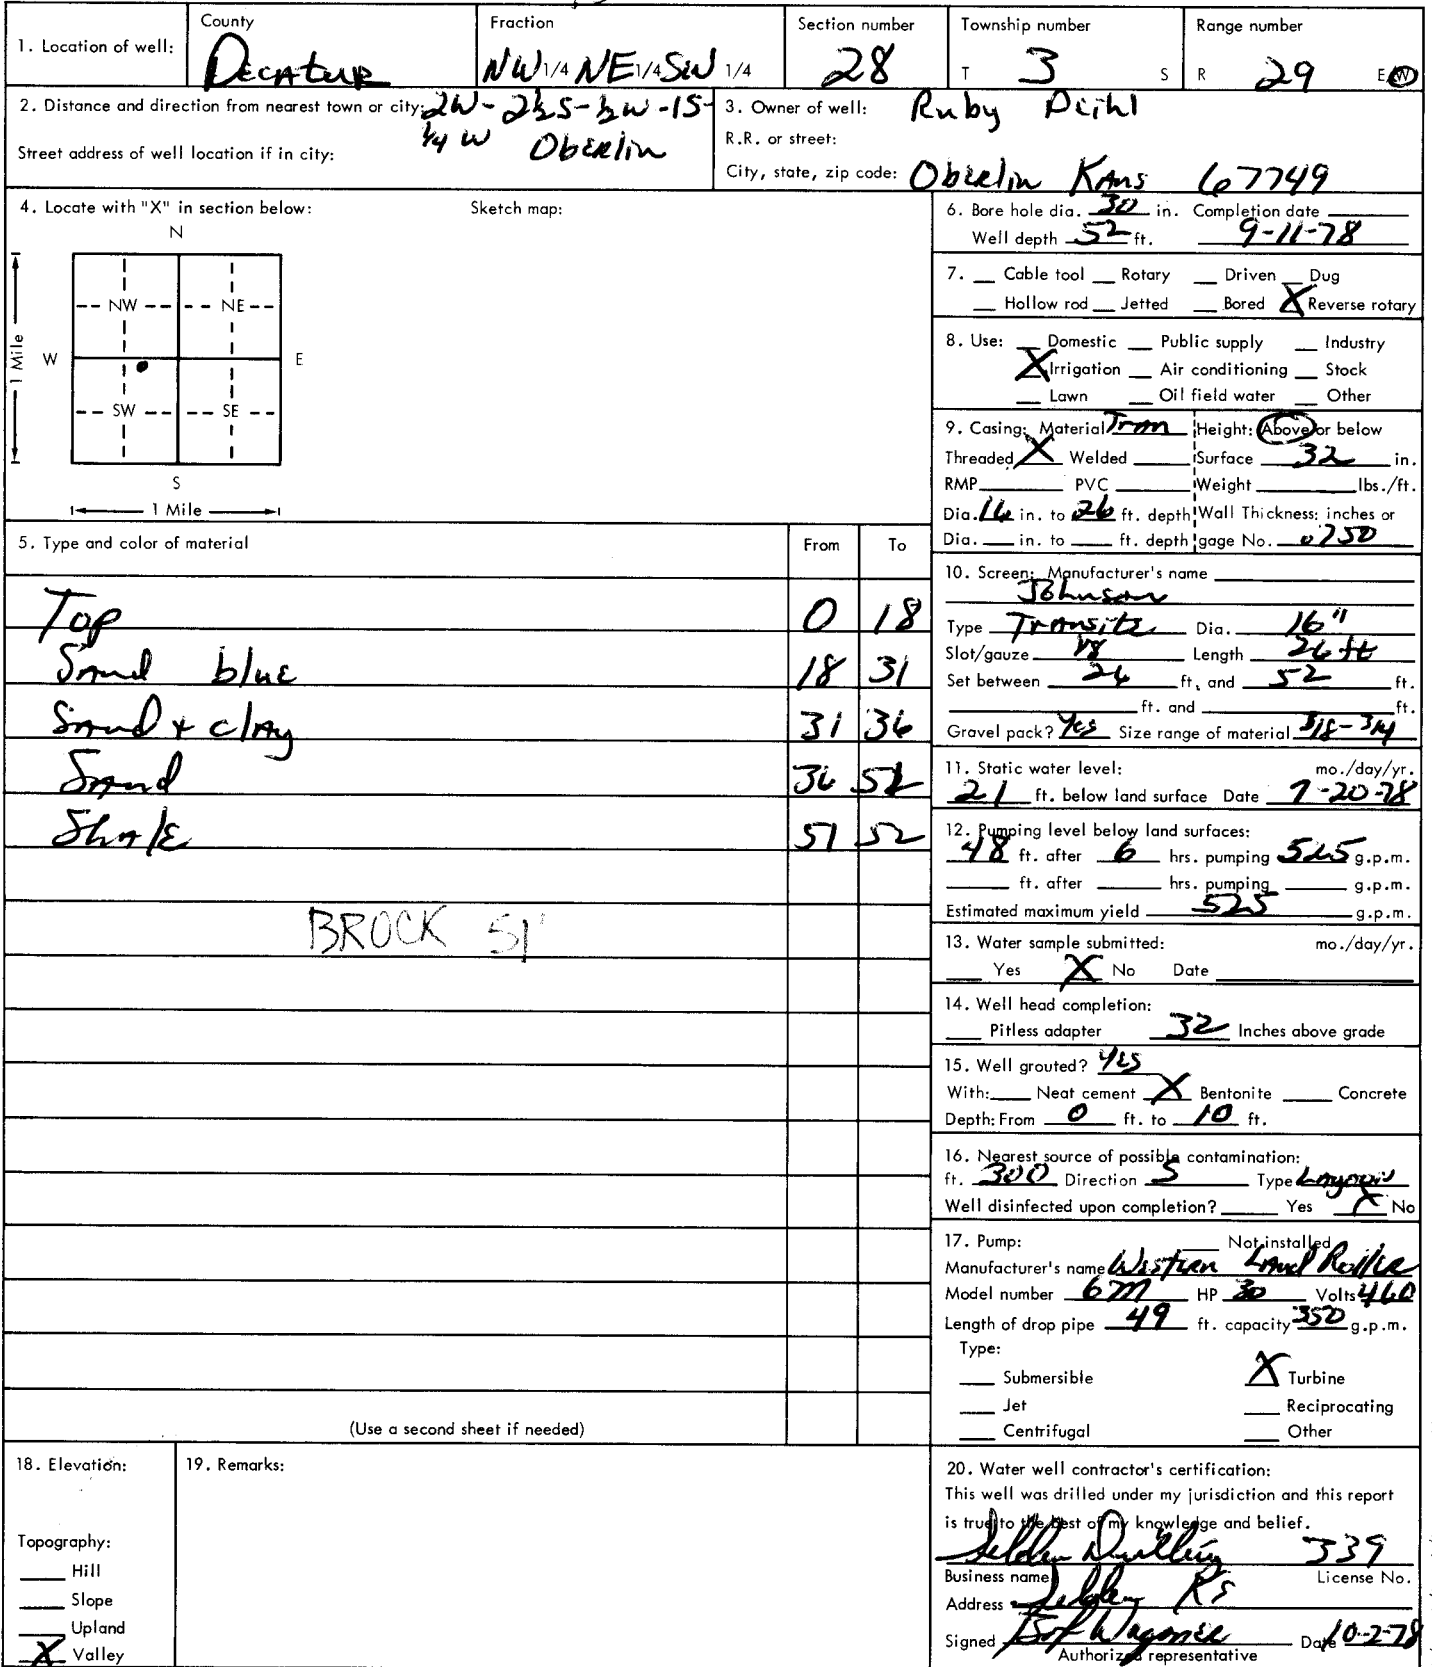 1. Location of well: County Decatur Fraction NW 1/4 NE 1/4 SW 1/4 Section number 28 Township number T 3 S Range number R 29 E W
2. Distance and direction from nearest town or city: 2W - 2½S - ½W - 1S -
¼ W Oberlin
Street address of well location if in city:
3. Owner of well: Ruby Deihl
R.R. or street:
City, state, zip code: Oberlin Kans 67749
4. Locate with "X" in section below: Sketch map:
N
NW NE
W E
1 Mile
SW SE
S
1 Mile
5. Type and color of material From To
Top 0 18
Sand blue 18 31
Sand + clay 31 36
Sand 36 52
Shale 51 52
BROCK 51'
(Use a second sheet if needed)
6. Bore hole dia. 30 in. Completion date
Well depth 52 ft. 9-11-78
7. Cable tool Rotary Driven Dug
Hollow rod Jetted Bored X Reverse rotary
8. Use: Domestic Public supply Industry
X Irrigation Air conditioning Stock
Lawn Oil field water Other
9. Casing: Material Tran Height: Above or below
Threaded X Welded Surface 32 in.
RMP PVC Weight lbs./ft.
Dia. 16 in. to 26 ft. depth Wall Thickness: inches or
Dia. in. to ft. depth gage No. .0750
10. Screen: Manufacturer's name
Johnson
Type Transite Dia. 16"
Slot/gauze 1/8 Length 26 ft
Set between 26 ft. and 52 ft.
ft. and ft.
Gravel pack? Yes Size range of material 3/8 - 3/4
11. Static water level: mo./day/yr.
21 ft. below land surface Date 9-20-78
12. Pumping level below land surfaces:
48 ft. after 6 hrs. pumping 525 g.p.m.
ft. after hrs. pumping g.p.m.
Estimated maximum yield 525 g.p.m.
13. Water sample submitted: mo./day/yr.
Yes X No Date
14. Well head completion:
Pitless adapter 32 Inches above grade
15. Well grouted? Yes
With: Neat cement X Bentonite Concrete
Depth: From 0 ft. to 10 ft.
16. Nearest source of possible contamination:
ft. 300 Direction S Type
Well disinfected upon completion? Yes X No
17. Pump: Not installed
Manufacturer's name Western Land Roller
Model number 6M HP 30 Volts 460
Length of drop pipe 49 ft. capacity 350 g.p.m.
Type:
Submersible X Turbine
Jet Reciprocating
Centrifugal Other
18. Elevation:
Topography:
Hill
Slope
Upland
X Valley
19. Remarks:
20. Water well contractor's certification:
This well was drilled under my jurisdiction and this report
is true to the best of my knowledge and belief.
Selden Drilling 339
Business name License No.
Address Selden Ks
Signed Wagoner Date 10-2-78
Authorized representative